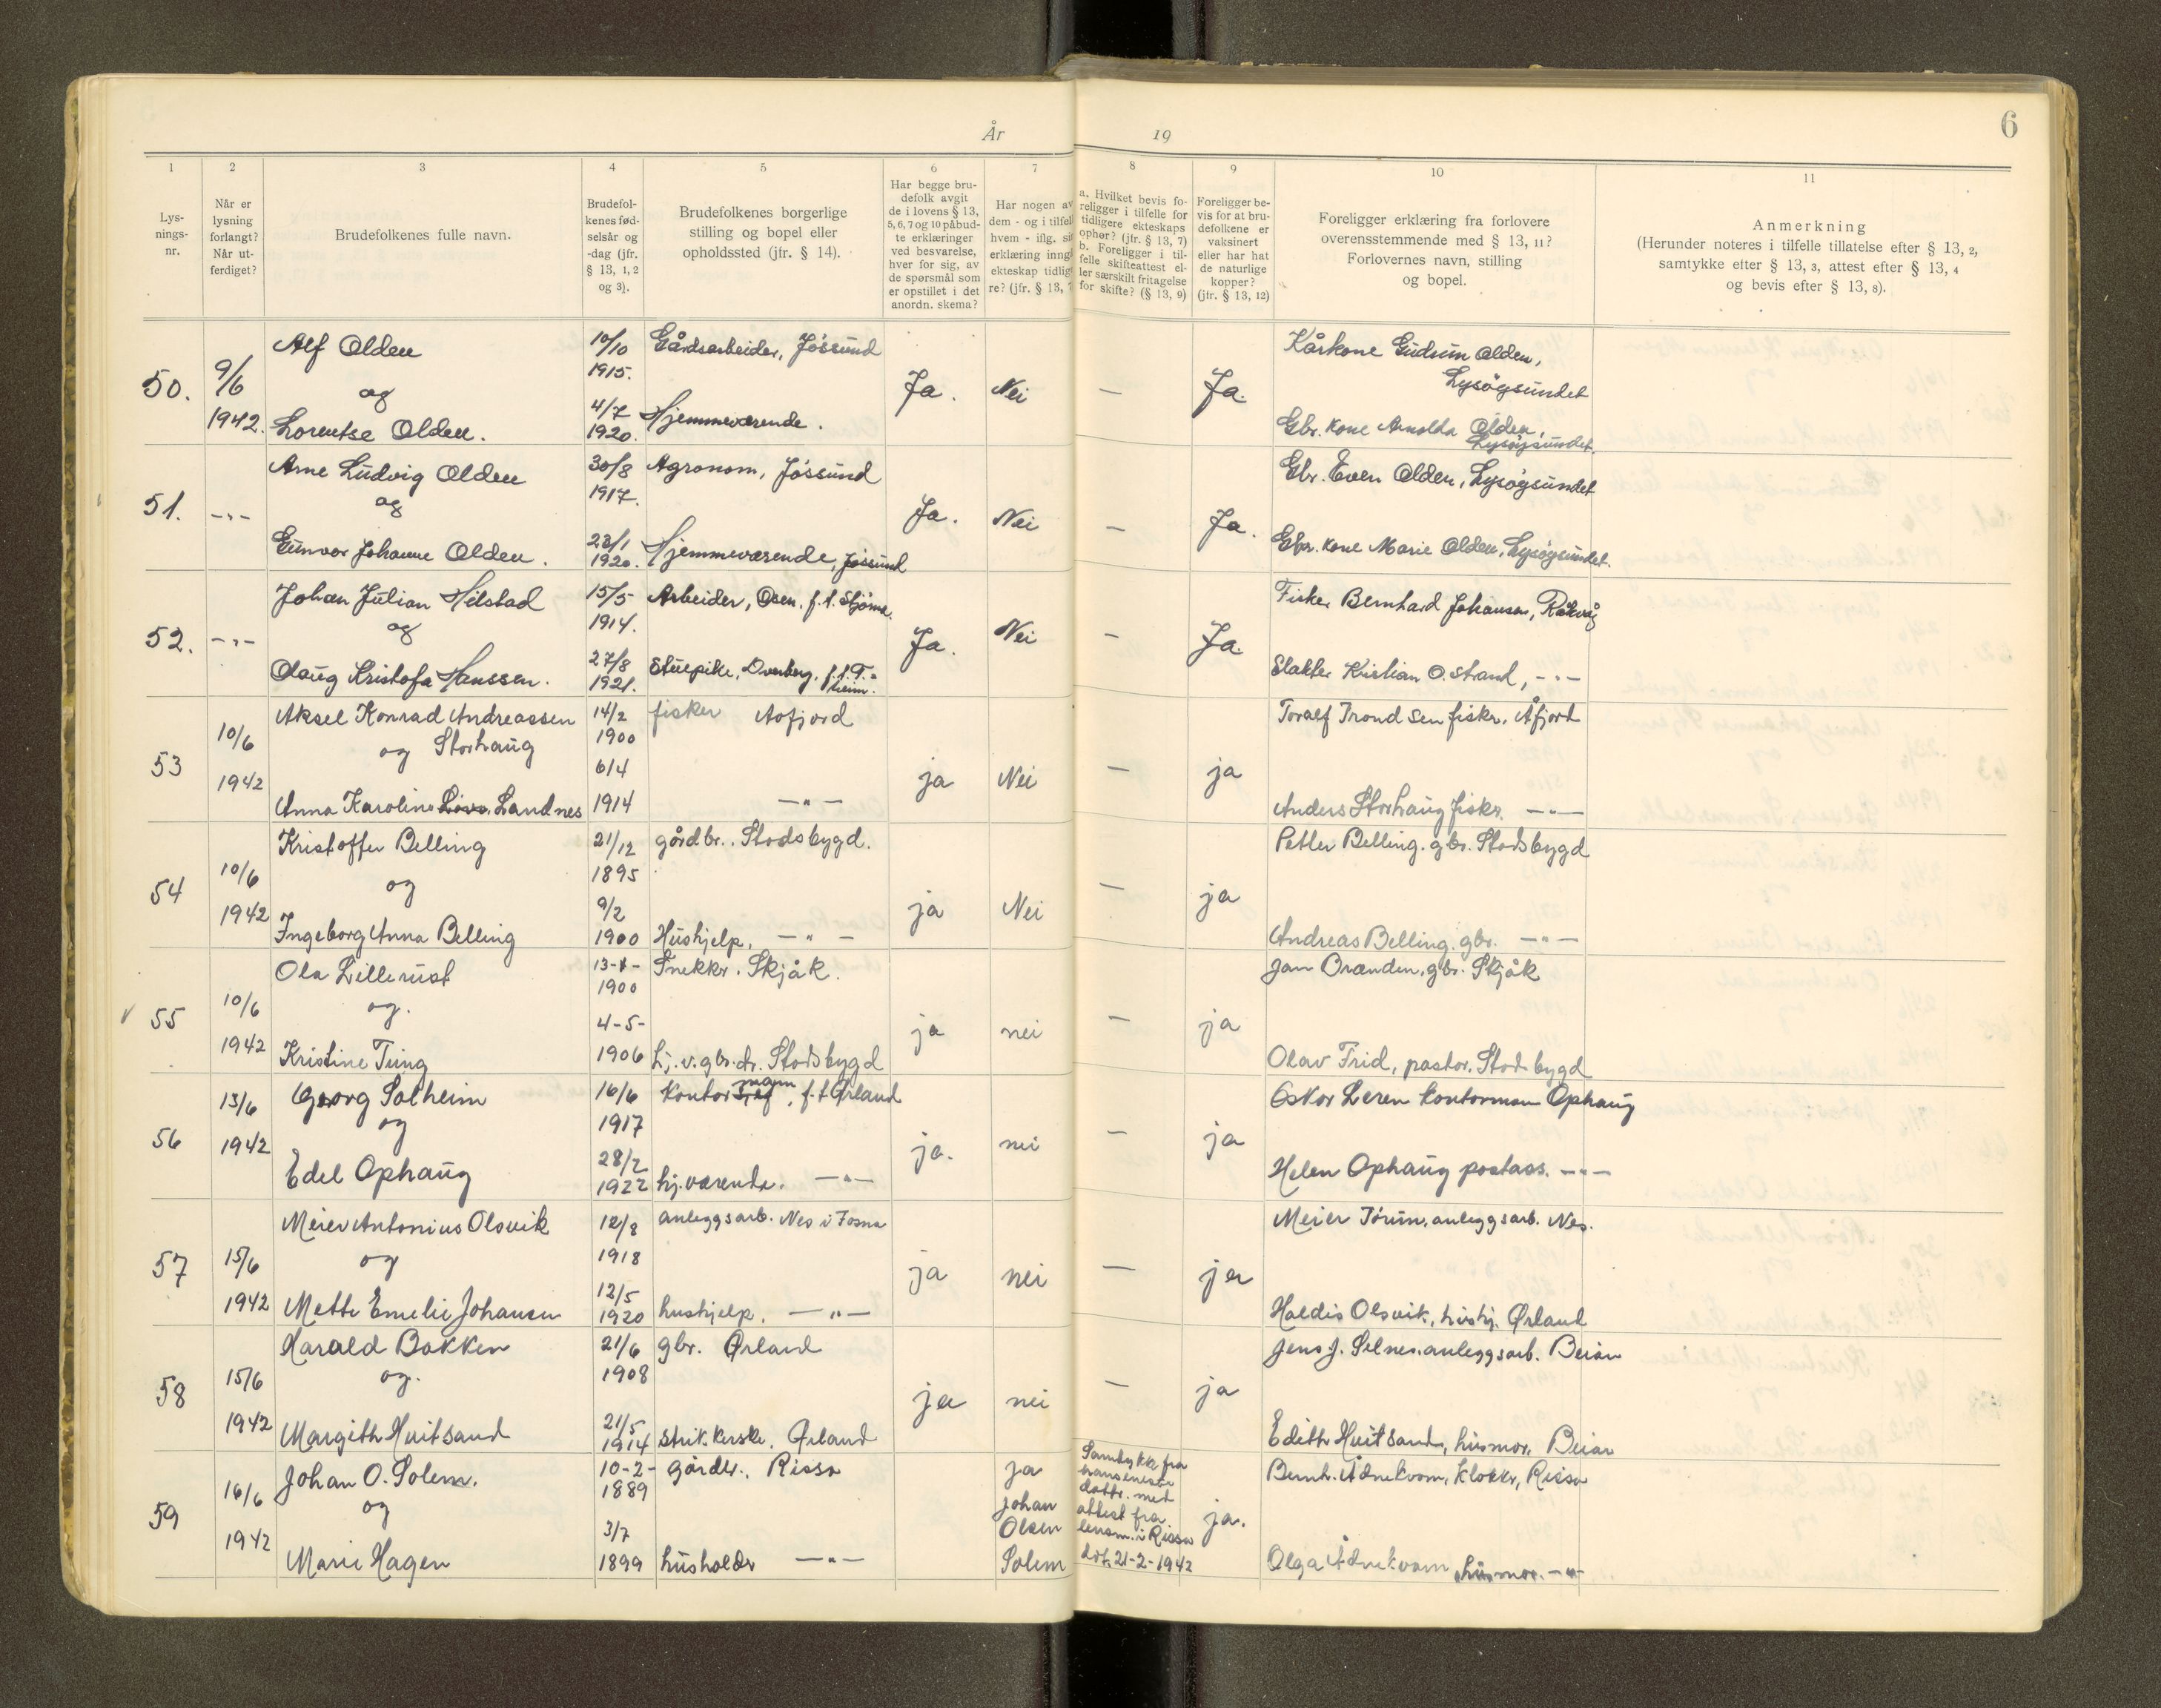 6
År 19
1 2 3 4 5 6 7 8 9 10 11
Lys-
nings-
nr.
Når er
lysning
forlangt?
Når ut-
ferdiget?
Brudefolkenes fulle navn.
Brudefol-
kenes fød-
selsår og
-dag (jfr.
§ 13, 1, 2
og 3).
Brudefolkenes borgerlige
stilling og bopel eller
opholdssted (jfr. § 14).
Har begge bru-
defolk avgit
de i lovens § 13,
5, 6, 7 og 10 påbud-
te erklæringer
ved besvarelse,
hver for sig, av
de spørsmål som
er opstillet i det
anordn. skema?
Har nogen av
dem - og i tilfel
hvem - iflg. si
erklæring inng
ekteskap tidlig
re? (jfr. § 13, 7
a. Hvilket bevis fo-
religger i tilfelle for
tidligere ekteskaps
ophør? (jfr. § 13, 7)
b. Foreligger i til-
felle skifteattest el-
ler særskilt fritagelse
for skifte? (§ 13, 9)
Foreligger be-
vis for at bru-
defolkene er
vaksinert
eller har hat
de naturlige
kopper?
(jfr. § 13, 12)
Foreligger erklæring fra forlovere
overensstemmende med § 13, 11?
Forlovernes navn, stilling
og bopel.
Anmerkning
(Herunder noteres i tilfelle tillatelse efter § 13, 2,
samtykke efter § 13, 3, attest efter § 13, 4
og bevis efter § 13, 8).
50. 9/6 1942.
Alf Olden
og
Lorentse Olden.
10/10
1915.
4/7
1920.
Gårdsarbeider, Jøssund
Hjemmeværende.
Ja. Nei — Ja.
Kårkone Gudrun Olden,
Lysøysundet
Gbr. kone Arnolda Olden,
Lysøysundet.
51. -"-
Arne Ludvig Olden
og
Gunvor Johanne Olden.
30/8
1917.
23/1
1920.
Agronom, Jøssund
Hjemmeværende, Jøssund
Ja. Nei — Ja.
Gbr. Even Olden, Lysøysundet
Gbr. kone Marie Olden, Lysøysundet.
52. -"-
Johan Julian Hilstad
og
Olaug Kristofa Hanssen.
15/5
1914.
27/8
1921.
Arbeider, Osen, f. t. Stjørna.
Stuepike, Dverberg, f. t. T.-
heim.
Ja. Nei — Ja.
Fisker Bernhard Johansen, Råkvåg
Slakter Kristian O. Strand, -"-
53 10/6 1942
Aksel Konrad Andreassen
og Storhaug
Anna Karoline Landnes
14/2
1900
6/4
1914
fisker Aafjord
—"—
ja Nei — ja
Toralf Trondsen fisker. Åfjord
Anders Storhaug fisker. —"—
54 10/6 1942
Kristoffer Belling
og
Ingeborg Anna Belling
21/12
1895
9/2
1900
gårdbr. Stadsbygd.
Hushjelp, —"—
ja Nei — ja
Petter Belling. gbr. Stadsbygd
Andreas Belling. gbr. —"—
55 10/6 1942
Ola Lillerust
og.
Kristine Tung
1900
4-5-
1906
Snekker. Skjåk.
hj. v. gbr. dr. Stadsbygd
ja nei — ja
Jan Oranden, gbr. Skjåk
Olav Frid, pastor. Stadsbygd
56 13/6 1942
Georg Solheim
og
Edel Ophaug
16/6
1917
28/2
1922
kontormann, f. t. Ørland
hj. værende. —"—
ja. nei — ja
Oskar Leren kontormann Ophaug
Helen Ophaug postass. —"—
57 15/6 1942
Meier Antonius Olsvik
og
Mette Emelie Johansen
12/8
1918
12/5
1920
anleggsarb. Nes i Fosna
hushjelp. —"—
ja nei — ja
Meier Tørum, anleggsarb. Nes.
Haldis Olsvik, hushj. Ørland
58 15/6 1942
Harald Bakken
og.
Margith Hvitsand
21/6
1908
21/5
1914
gbr. Ørland
strikkerske. Ørland
ja nei — ja
Jens J. Selnes. anleggsarb. Beian
Edith Hvitsand, husmor. Beian
59 16/6 1942
Johan O. Solem.
og
Marie Hagen
10-2-
1889
3/7
1899
gårdbr., Rissa
husholder —"—
ja
Johan
Olsen
Solem
Samtykke fra
eneste
datter med
attest fra
lensm. i Rissa
dat. 21-2-1942
ja.
Bernh. Ådnekvam, klokker, Rissa
Olga Ådnekvam husmor. -"-